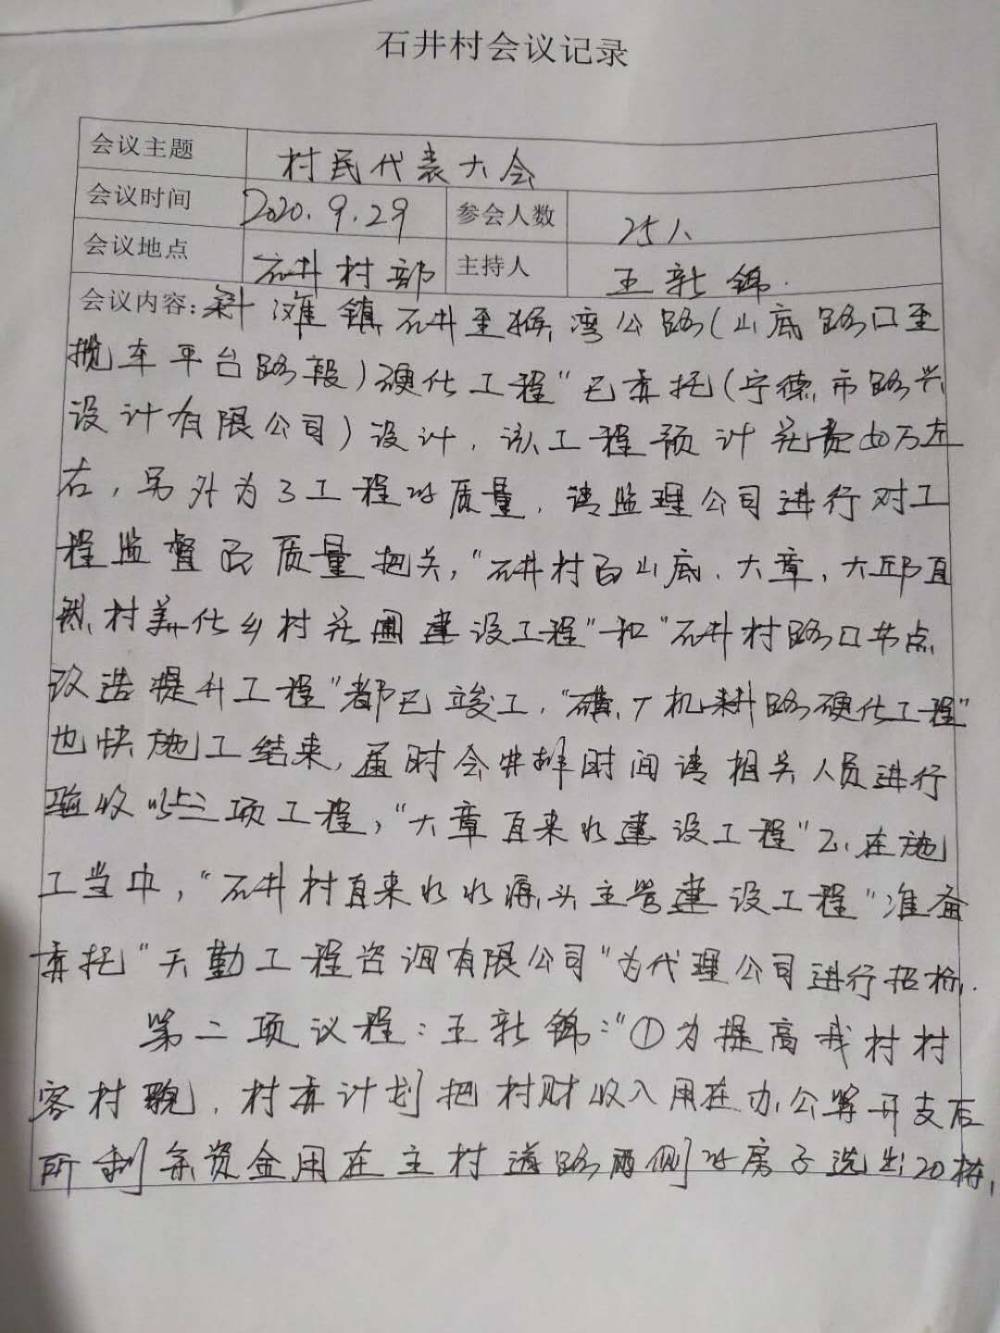 石井村会议记录
会议主题 村民代表大会
会议时间 2020.9.29 参会人数 25人
会议地点 石井村部 主持人 王新锦
会议内容：斜滩镇石井至猴湾公路(山底路口至
揽车平台路段)硬化工程"已委托(宁德市路兴
设计有限公司)设计，该工程预计花费 万左
右，另外为了工程的质量，请监理公司进行对工
程监督和质量把关，"石井村白山底、大章、大邱自
然村美化乡村花圃建设工程"和"石井村路口节点
改造提升工程"都已竣工，"磺厂机耕路硬化工程"
也快施工结束，届时会安排时间请相关人员进行
验收以上三项工程，"大章自来水建设工程"正在施
工当中，"石井村自来水水源头主管建设工程"准备
委托"天勤工程咨询有限公司"为代理公司进行招标.
第二项议程：王新锦："①为提高我村村
容村貌，村委计划把村财收入用在办公等开支后
所剩余资金用在主村道路两侧的房子选出20栋，